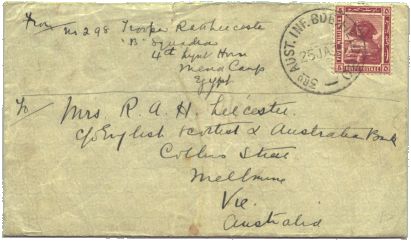 From No 298 Trooper R A Leicester
"B" Squadron
4th Light Horse
Mena Camp
Egypt
3RD AUST. INF. BDE
25 JA
To Mrs R. A. H. Leicester.
c/o English Scottish & Australian Bank
Collins Street
Melbourne
Vic.
Australia